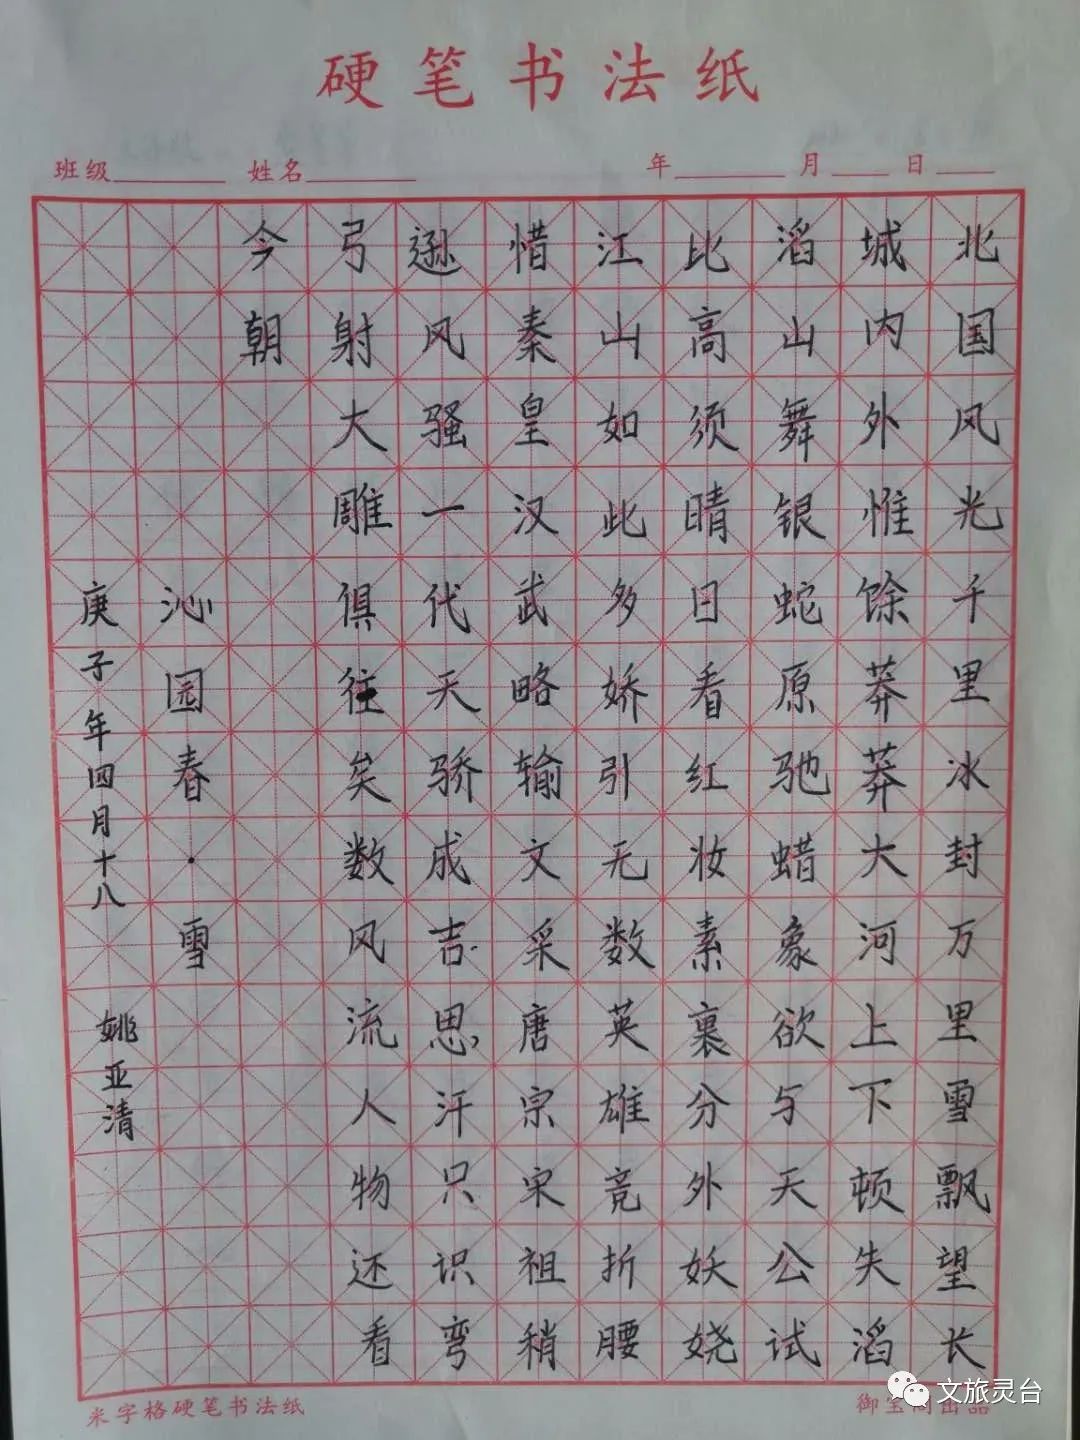 硬笔书法纸
班级 姓名 年 月 日
北国风光千里冰封万里雪飘望长
城内外惟馀莽莽大河上下顿失滔
滔山舞银蛇原驰蜡象欲与天公试
比高须晴日看红妆素裹分外妖娆
江山如此多娇引无数英雄竞折腰
惜秦皇汉武略输文采唐宗宋祖稍
遜风骚一代天骄成吉思汗只识弯
弓射大雕俱往矣数风流人物还看
今朝
沁园春·雪
庚子年四月十八 姚亚清
米字格硬笔书法纸
御宝阁出品
文旅灵台